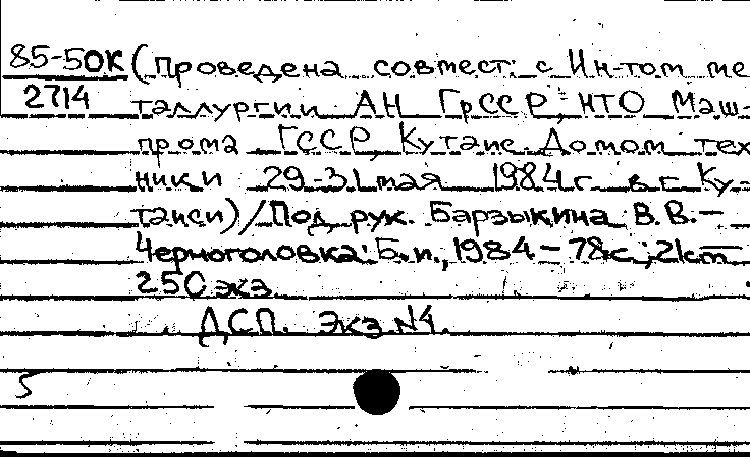 85-50К (Проведена совмест. с Ин-том ме-
2714 таллургии АН ГрССР, НТО Маш-
прома ГССР, Кутаис. Домом тех-
ники 29-31 мая 1984 г. в г. Ку-
таиси) / Под рук. Барзыкина В.В. —
Черноголовка: Б.и., 1984 — 78с.; 21см —
250 экз.
ДСП. Экз №4.
5